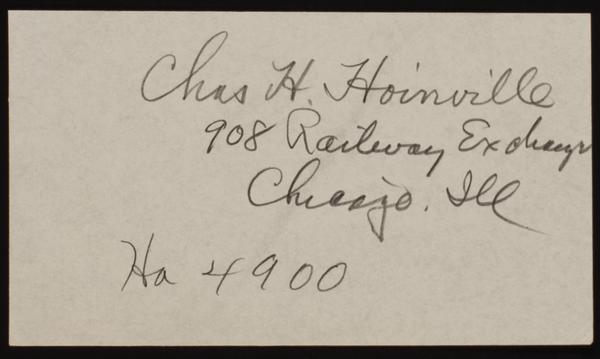 Chas H. Hoinville
908 Railway Exchange
Chicago. Ill
Ha 4900